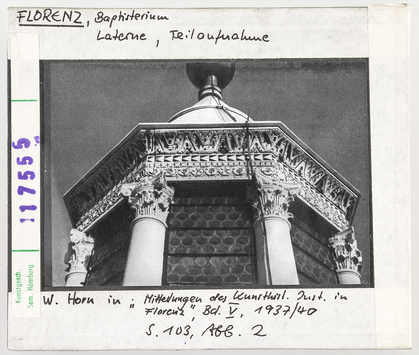 FLORENZ, Baptisterium
Laterne, Teilaufnahme
117555
Kunstgesch.
Sem. Hamburg
W. Horn in: „Mitteilungen des Kunsthist. Inst. in
Florenz", Bd. V, 1937/40
S. 103, Abb. 2